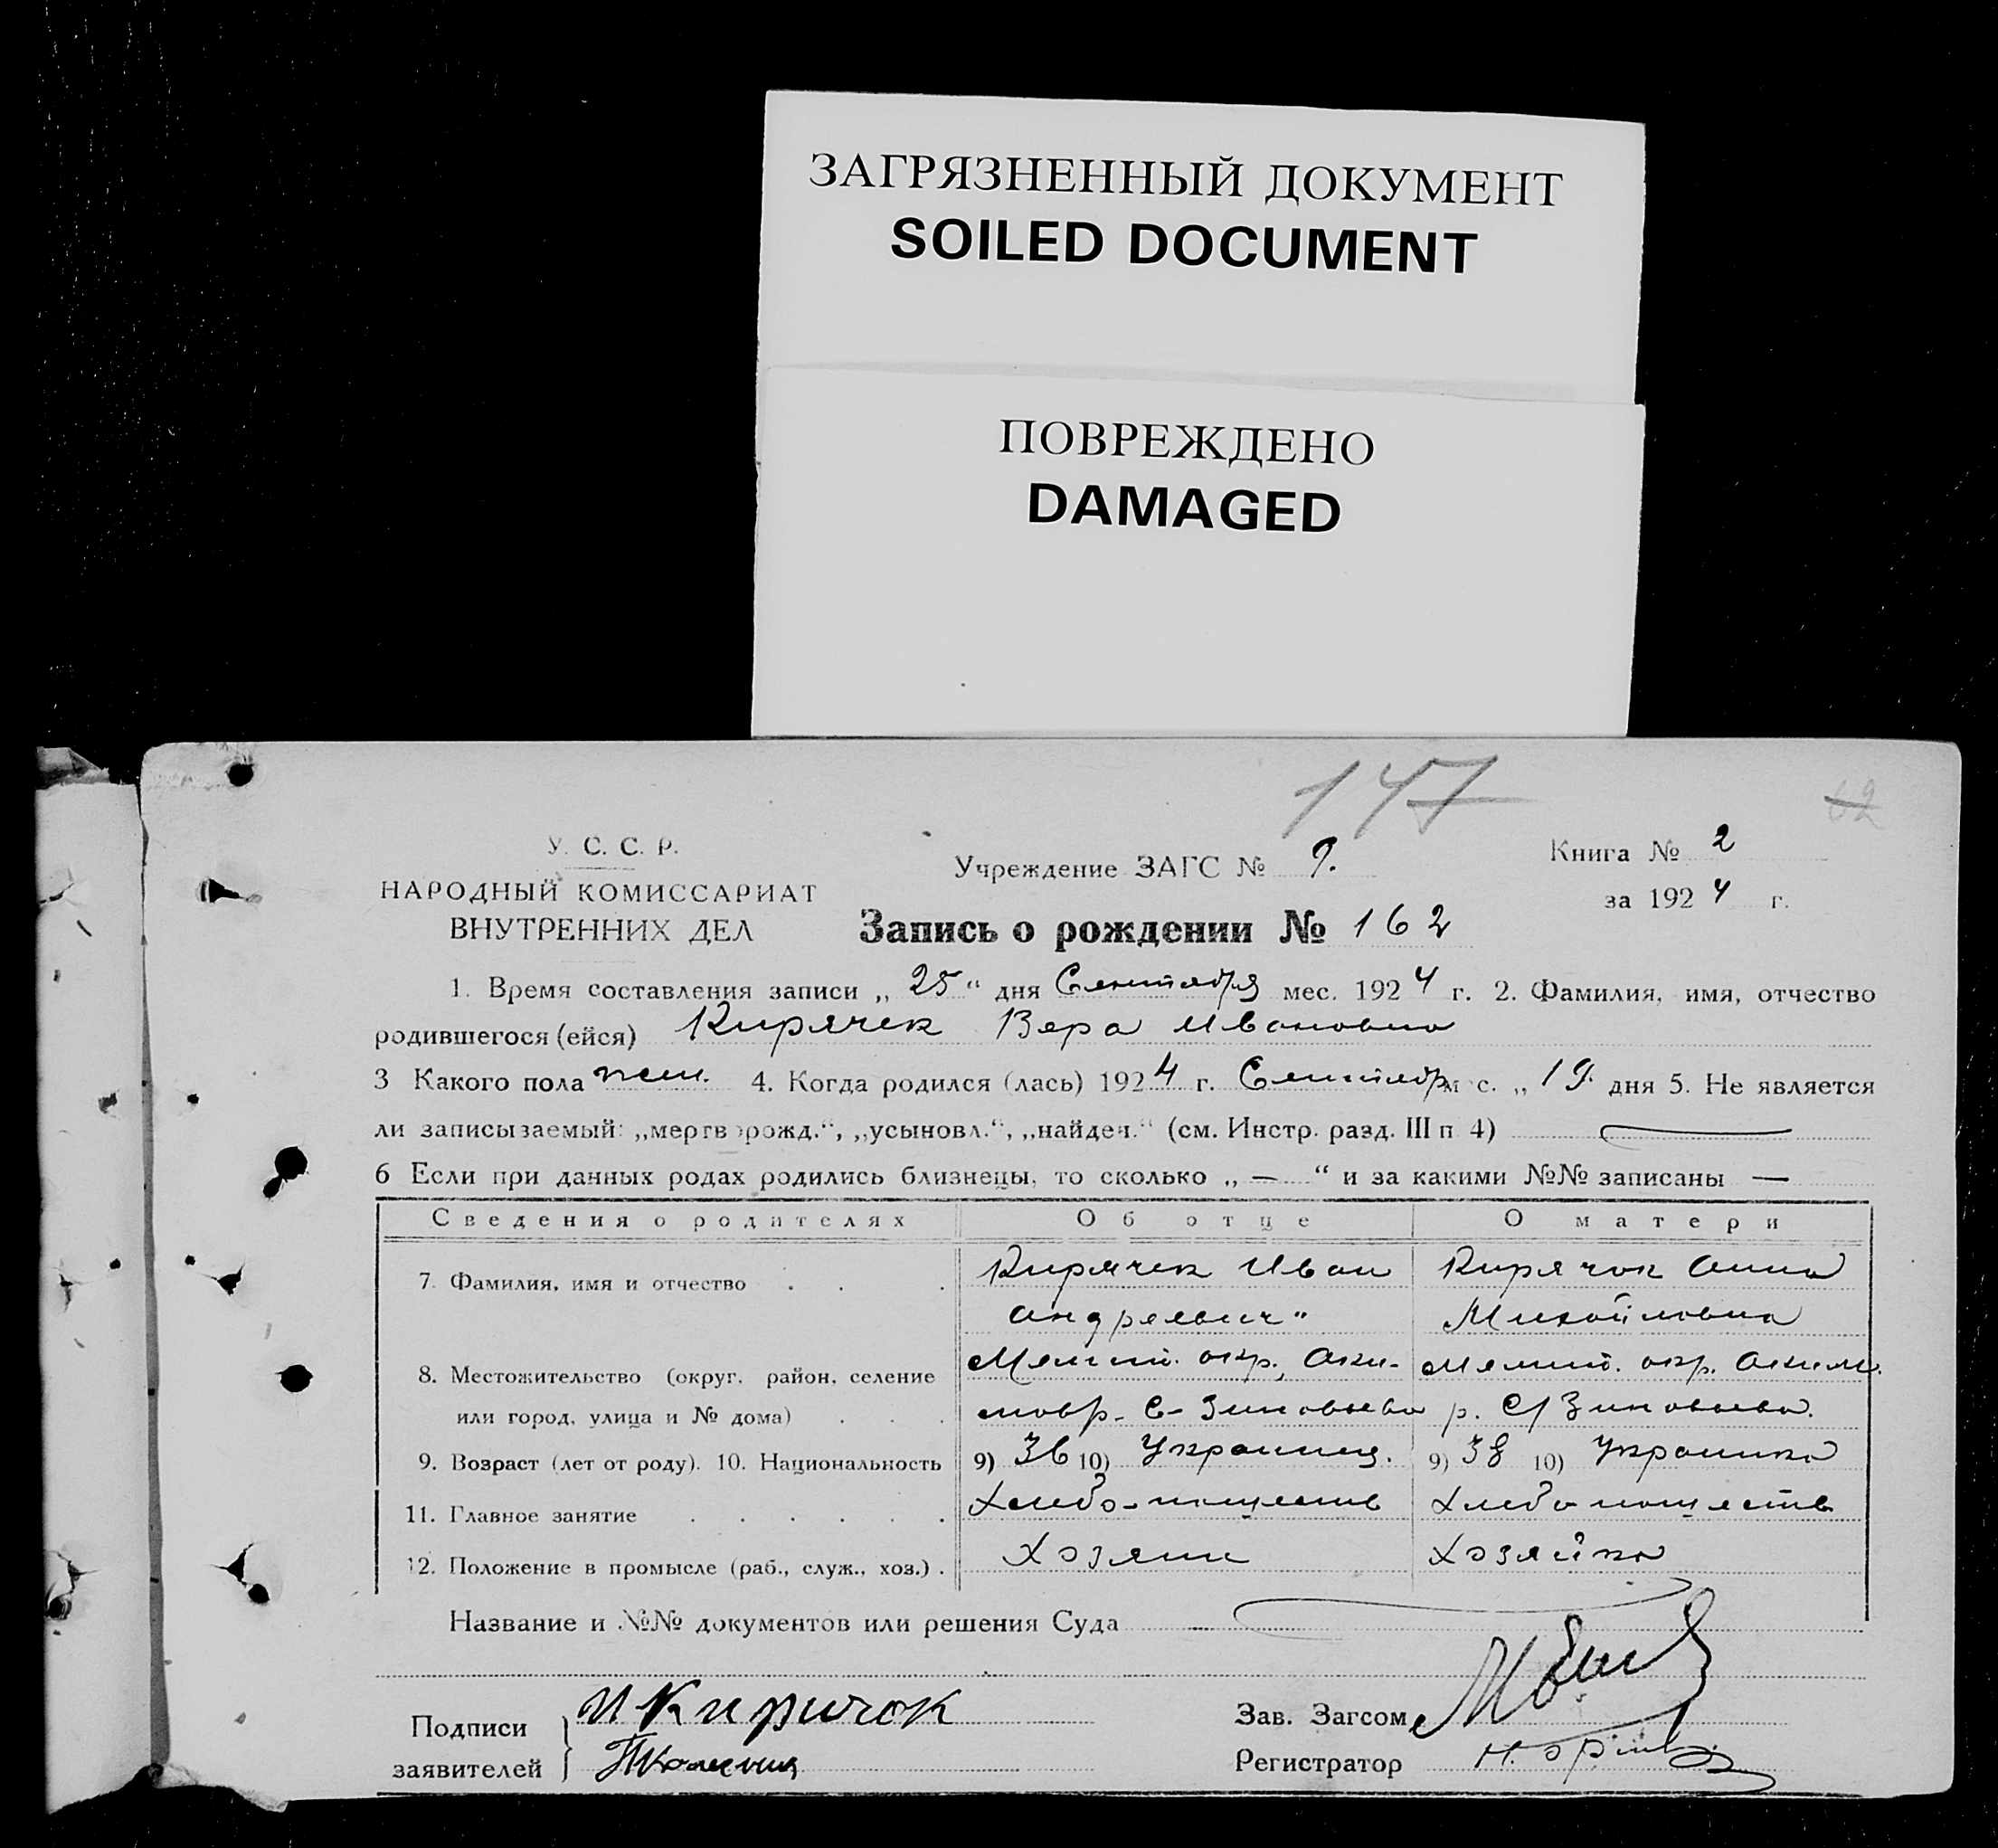 ЗАГРЯЗНЕННЫЙ ДОКУМЕНТ
SOILED DOCUMENT
ПОВРЕЖДЕНО
DAMAGED
147
62
У. С. С. Р.
НАРОДНЫЙ КОМИССАРИАТ
ВНУТРЕННИХ ДЕЛ
Учреждение ЗАГС № 9.
Книга № 2
за 1924 г.
Запись о рождении № 162
1. Время составления записи „25“ дня Сентября мес. 1924 г. 2. Фамилия, имя, отчество
родившегося (ейся) Кирячек Вера Ивановна
3 Какого пола жен. 4. Когда родился (лась) 1924 г. Сентябр м с. „19 дня 5. Не является
ли записываемый: „мертворожд.“, „усыновл.“, „найден.“ (см. Инстр. разд. III п 4)
6 Если при данных родах родились близнецы, то сколько „ — “ и за какими №№ записаны —
Сведения о родителях Об отце О матери
7. Фамилия, имя и отчество . . . Кирячек Иван Кирячок Анна
Андреевич" Михайловна
8. Местожительство (округ. район, селение Мелит. окр., Аки- Мелит. окр. Аким.
или город, улица и № дома) . . . мовр. с- Зиновьева р. С/Зиновьева.
9. Возраст (лет от роду). 10. Национальность 9) 36 10) Украинец. 9) 38 10) Украинка
11. Главное занятие . . . . . . Хлебо-пашеств Хлебопашеств
12. Положение в промысле (раб., служ., хоз.) . Хозяин Хозяйка
Название и №№ документов или решения Суда
Подписи И Киричок
заявителей
Зав. Загсом
Регистратор